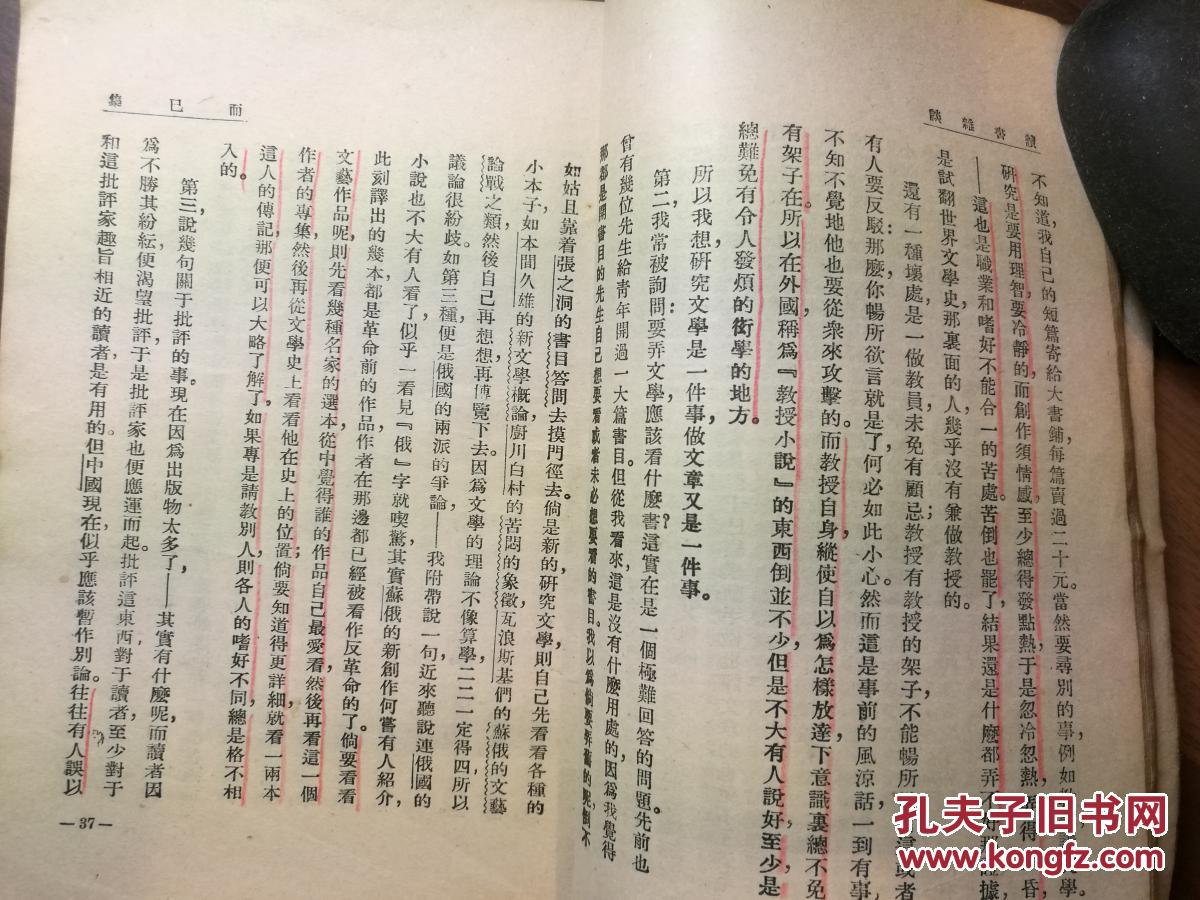 讀書雜談
不知道，我自己的短篇寄給大書鋪，每篇賣過二十元。當然要尋別的事，例如
研究是要用理智，要冷靜的，而創作須情感，至少總得發點熱，于是忽冷忽熱，
——這也是職業和嗜好不能合一的苦處。苦倒也罷了，結果還是什麽都弄不好。那證據，
是試翻世界文學史，那裏面的人，幾乎沒有兼做教授的。
還有一種壞處，是一做教員，未免有顧忌；教授有教授的架子，不能暢所
有人要反駁：那麽，你暢所欲言就是了，何必如此小心。然而這是事前的風涼話，一到有事，
不知不覺地他也要從衆來攻擊的。而教授自身，縱使自以爲怎樣放達，下意識裏總不免
有架子在。所以在外國，稱爲『教授小說』的東西倒並不少，但是不大有人說好，至少，是
總難免有令人發煩的衒學的地方。
所以我想，研究文學是一件事，做文章又是一件事。
第二，我常被詢問：要弄文學，應該看什麽書？這實在是一個極難回答的問題。先前也
曾有幾位先生給青年開過一大篇書目。但從我看來，這是沒有什麽用處的，因爲我覺得
那都是開書目的先生自己想要看或者未必想要看的書目。我以爲倘要弄舊的呢，倒不
而已集
如姑且靠着張之洞的書目答問去摸門徑去。倘是新的，研究文學，則自己先看看各種的
小本子，如本間久雄的新文學概論，廚川白村的苦悶的象徵，瓦浪斯基們的蘇俄的文藝
論戰之類，然後自己再想想，再博覽下去。因爲文學的理論不像算學，二二一定得四，所以
議論很紛歧。如第三種，便是俄國的兩派的爭論——我附帶說一句，近來聽說連俄國的
小說也不大有人看了，似乎一看見『俄』字就喫驚，其實蘇俄的新創作何嘗有人紹介，
此刻譯出的幾本，都是革命前的作品，作者在那邊都已經被看作反革命的了。倘要看看
文藝作品呢，則先看幾種名家的選本，從中覺得誰的作品自己最愛看，然後再看這一個
作者的專集，然後再從文學史上看看他在史上的位置；倘要知道得更詳細，就看一兩本
這人的傳記，那便可以大略了解了。如果專是請教別人，則各人的嗜好不同，總是格不相
入的。
第三，說幾句關于批評的事。現在因爲出版物太多了——其實有什麽呢，而讀者因
爲不勝其紛紜，便渴望批評，于是批評家也便應運而起。批評這東西，對于讀者，至少對于
和這批評家趣旨相近的讀者，是有用的。但中國現在，似乎應該暫作別論。往往有人誤以
—37—
孔夫子旧书网
www.kongfz.com